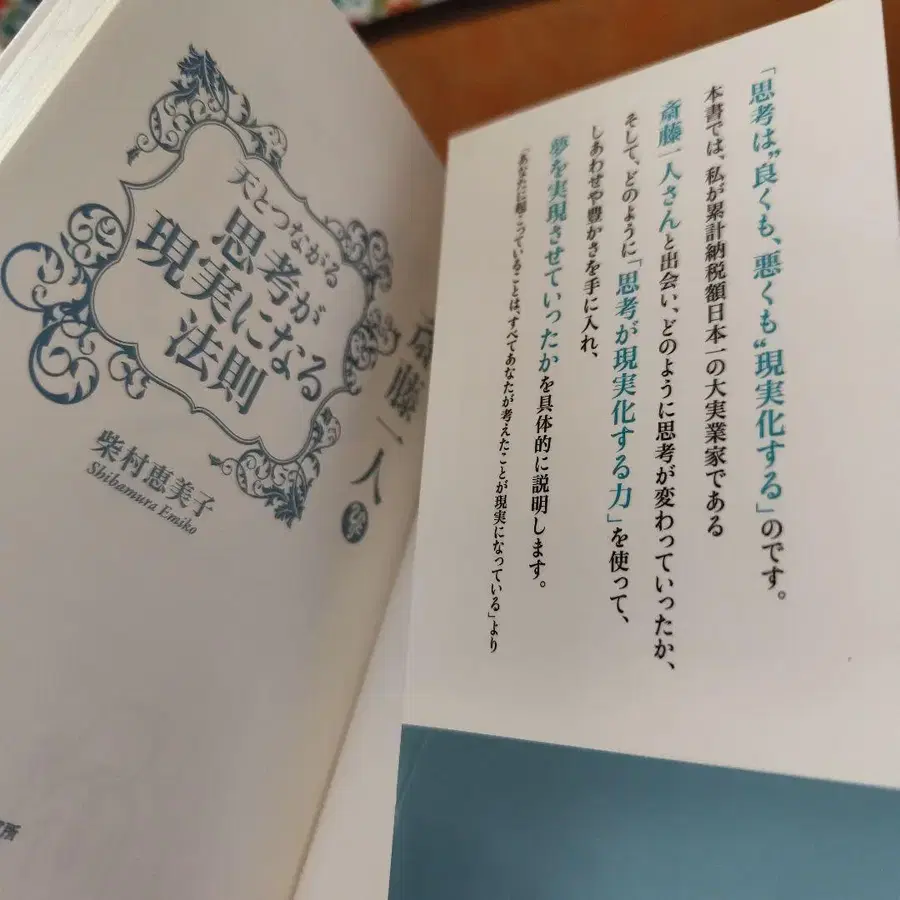 「思考は"良くも、悪くも"現実化する」のです。
本書では、私が累計納税額日本一の大実業家である
斎藤一人さんと出会い、どのように思考が変わっていったか、
そして、どのように「思考が現実化する力」を使って、
しあわせや豊かさを手に入れ、
夢を実現させていったかを具体的に説明します。
「あなたに起こっていることは、すべてあなたが考えたことが現実になっている」より
斎藤一人
天とつながる
思考が
現実になる
法則
柴村恵美子
Shibamura Emiko
所